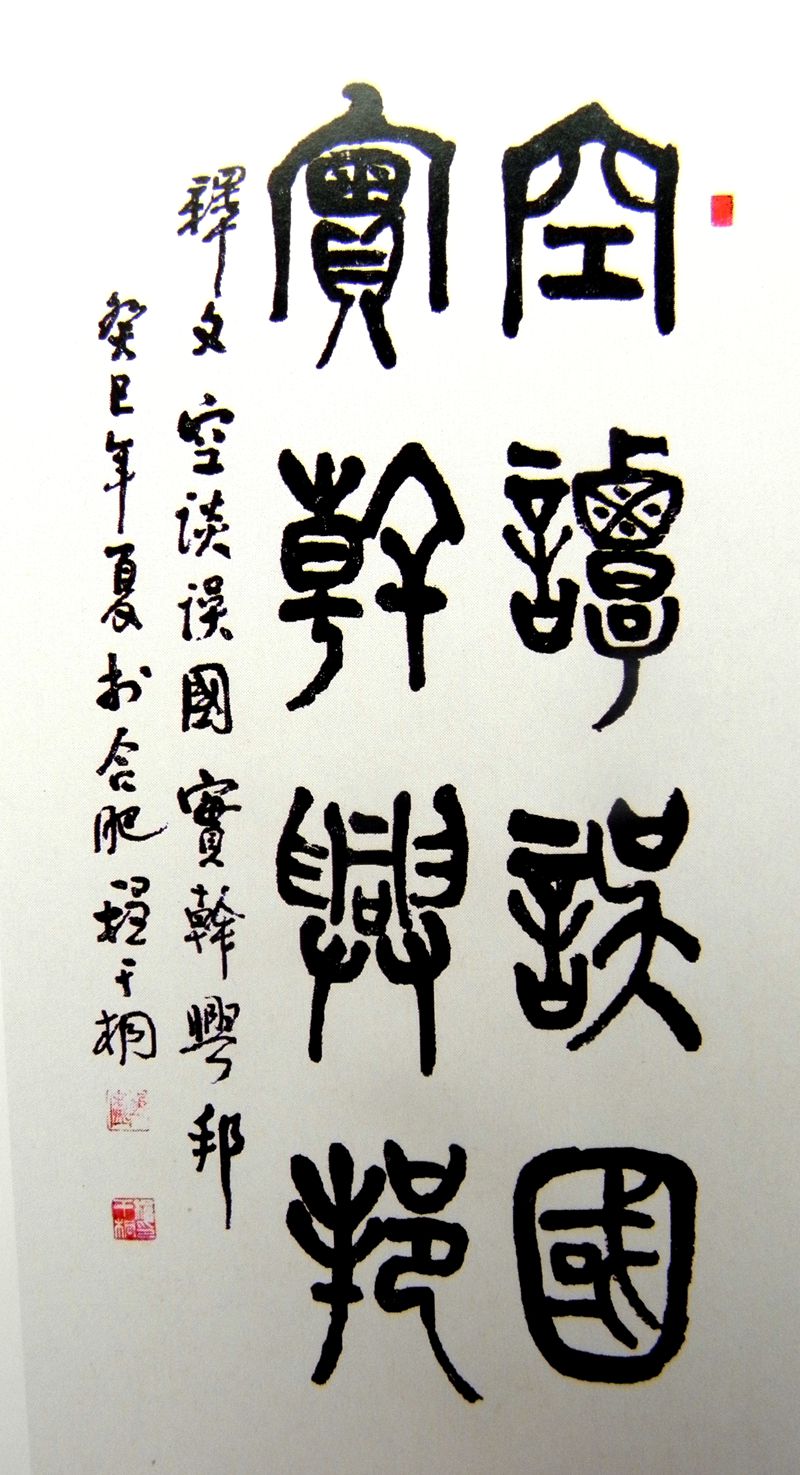 空譚誤國
實幹興邦
釋文 空谈误國 實幹興邦
癸巳年夏於合肥 程千桐